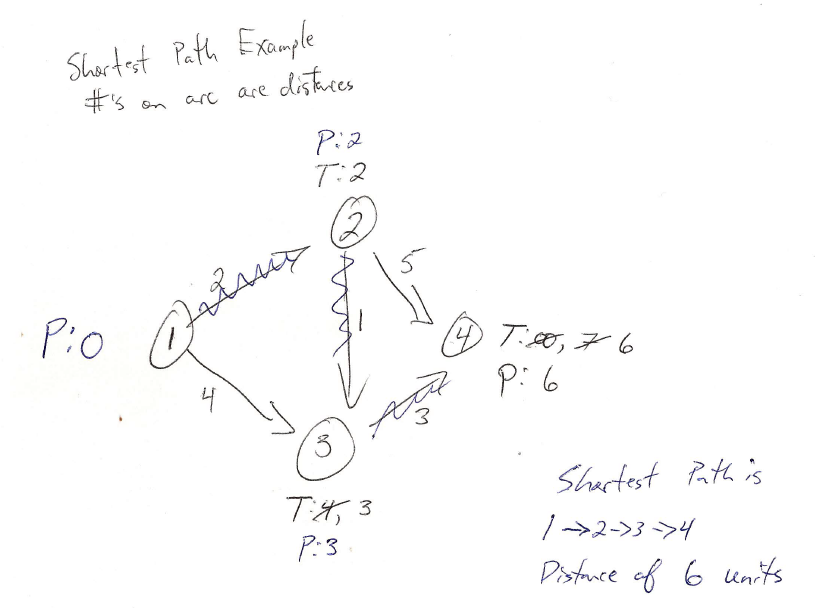 Shortest Path Example
#'s on arc are distances
P:2
T:2
2
2
5
P:0
1
1
4
T:∞, 7 6
P: 6
4
3
3
T:4, 3
P:3
Shortest Path is
1→2→3→4
Distance of 6 units